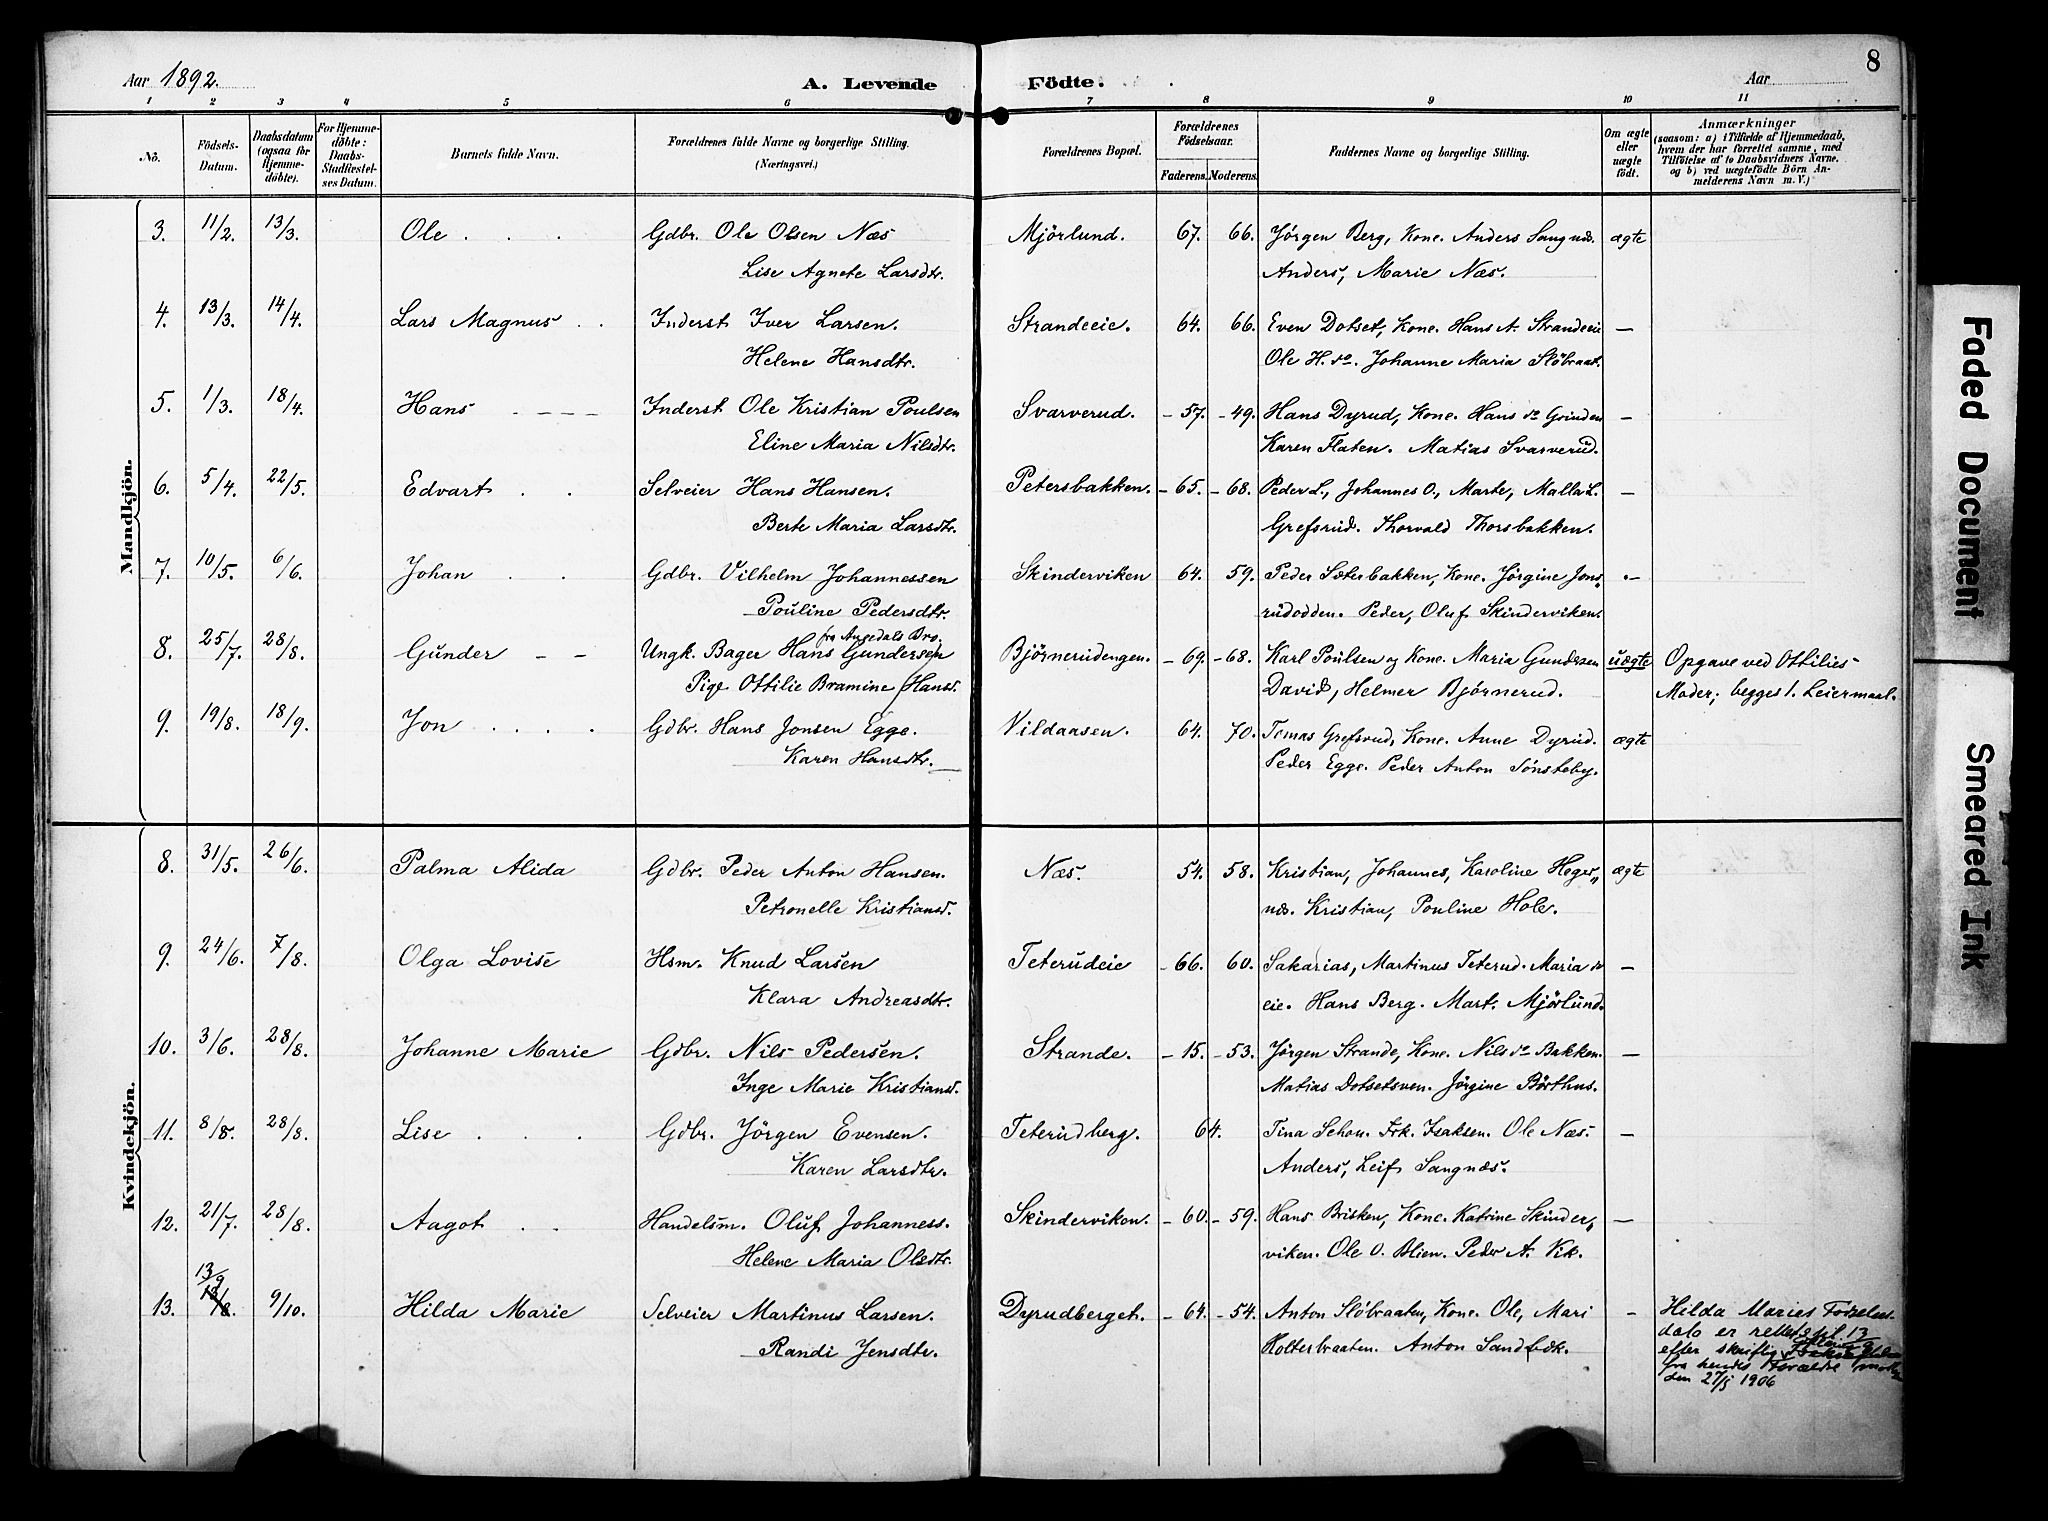 Aar 1892.
A. Levende Födte.
Aar
8
1 2 3 4 5 6 7 8 9 10 11
No. Födsels-Datum. Daabsdatum (ogsaa for Hjemmedöbte). For Hjemmedöbte: Daabs-Stadfæstelses Datum. Barnets fulde Navn. Forældrenes fulde Navne og borgerlige Stilling. (Næringsvei.) Forældrenes Bopæl. Forældrenes Födselsaar. Faderens. Moderens. Faddernes Navne og borgerlige Stilling. Om ægte eller uægte födt. Anmærkninger (saasom: a) i Tilfælde af Hjemmedaab, hvem der har forrettet samme, med Tilföielse af to Daabsvidners Navne, og b) ved uægtefödte Börn Anmelderens Navn m. V.)
Mandkjön.
3. 11/2. 13/3. Ole . . . Gdbr. Ole Olsen Næs Mjörlund. 67. 66. Jørgen Berg, Kone. Anders Sangnæs. ægte
Lise Agnete Larsdtr. Anders, Marie Næs.
4. 13/3. 14/4. Lars Magnus . . Inderst Iver Larsen. Strandeeie. 64. 66. Even Dotset, Kone. Hans A. Strandeeie —
Helene Hansdtr. Ole H. do. Johanne Maria Slöbraat.
5. 1/3. 18/4. Hans . - - - Inderst Ole Kristian Poulsen Svarverud. - 57. - 49. Hans Dyrud, Kone. Hans do Grinden —
Eline Maria Nilsdtr. Karen Flaten. Matias Svarverud.
6. 5/4. 22/5. Edvart . . Selveier Hans Hansen. Petersbakken. - 65. - 68. Peder L., Johannes O., Marte, Malla L. —
Berte Maria Larsdtr. Grefsrud. Thorvald Thorsbakken.
7. 10/5. 6/6. Johan . . Gdbr. Vilhelm Johannessen Skinderviken 64. 59. Peder Sæterbakken, Kone. Jørgine Jons„ —
Pouline Pedersdtr. rudodden. Peder, Oluf Skinderviken.
8. 25/7. 28/8. Gunder - - Ungk. Bager Hans Gundersen fra Angedals Bro. Björnerudengen. - 69. - 68. Karl Poulsen og Kone. Maria Gundersen uægte Opgave ved Ottilies
Pige Ottilie Bramine Hansd. David, Helmer Bjørnerud. Moder; begges 1. Leiermaal.
9. 19/8. 18/9. Jon . . . . Gdbr. Hans Jonsen Egge. Vildaasen. 64. 70. Tomas Grefsrud, Kone. Anne Dyrud. ægte
Karen Hansdtr. Peder Egge. Peder Anton Sønsteby.
Kvindekjön.
8. 31/5. 26/6. Palma Alida Gdbr. Peder Anton Hansen. Næs. 54. 58. Kristian, Johannes, Karoline Heger„ ægte
Petronelle Kristiansd. næs. Kristian, Pouline Hole.
9. 24/6. 7/8. Olga Lovise Hsm. Knud Larsen Teterudeie - 66. 60. Sakarias, Martinus Teterud. Maria do —
Klara Andreasdtr. eie. Hans Berg. Mart. Mjörlund.
10. 3/6. 28/8. Johanne Marie Gdbr. Nils Pedersen. Strande. - 15. - 53. Jørgen Strande, Kone. Nils do Bakken. —
Inge Marie Kristiansd. Matias Dotsetsven. Jörgine Börthus.
11. 8/8. 28/8. Lise . . . Gdbr. Jörgen Evensen. Teterudberg. 64. Tina Schou. Frk. Isaksen. Ole Næs. —
Karen Larsdtr. Anders, Leif Sangnæs.
12. 21/7. 28/8. Aagot . . Handelsm. Oluf Johanness. Skinderviken. - 60. - 59. Hans Brisken, Kone. Katrine Skinder„ —
Helene Maria Olsdtr. viken. Ole O. Blien. Peder A. Vik.
13/9
13. 13/8. 9/10. Hilda Marie Selveier Martinus Larsen. Dyrudberget. - 64. - 54. Anton Slöbraaten, Kone. Ole, Mari - Hilda Maries Fødsels-
Randi Jensdtr. Holterbraaten. Anton Sandbæk. dato er rettet til 13/9
efter skriftlig
fra hendes Forældre
den 27/5 1906
Faded Document
Smeared Ink